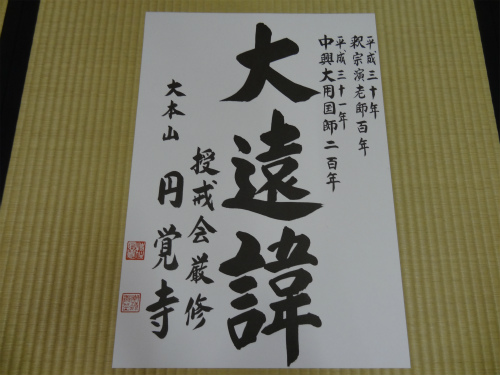 平成三十年
釈宗演老師百年
平成三十一年
中興大用国師二百年
大遠諱
授戒会厳修
大本山
円覚寺